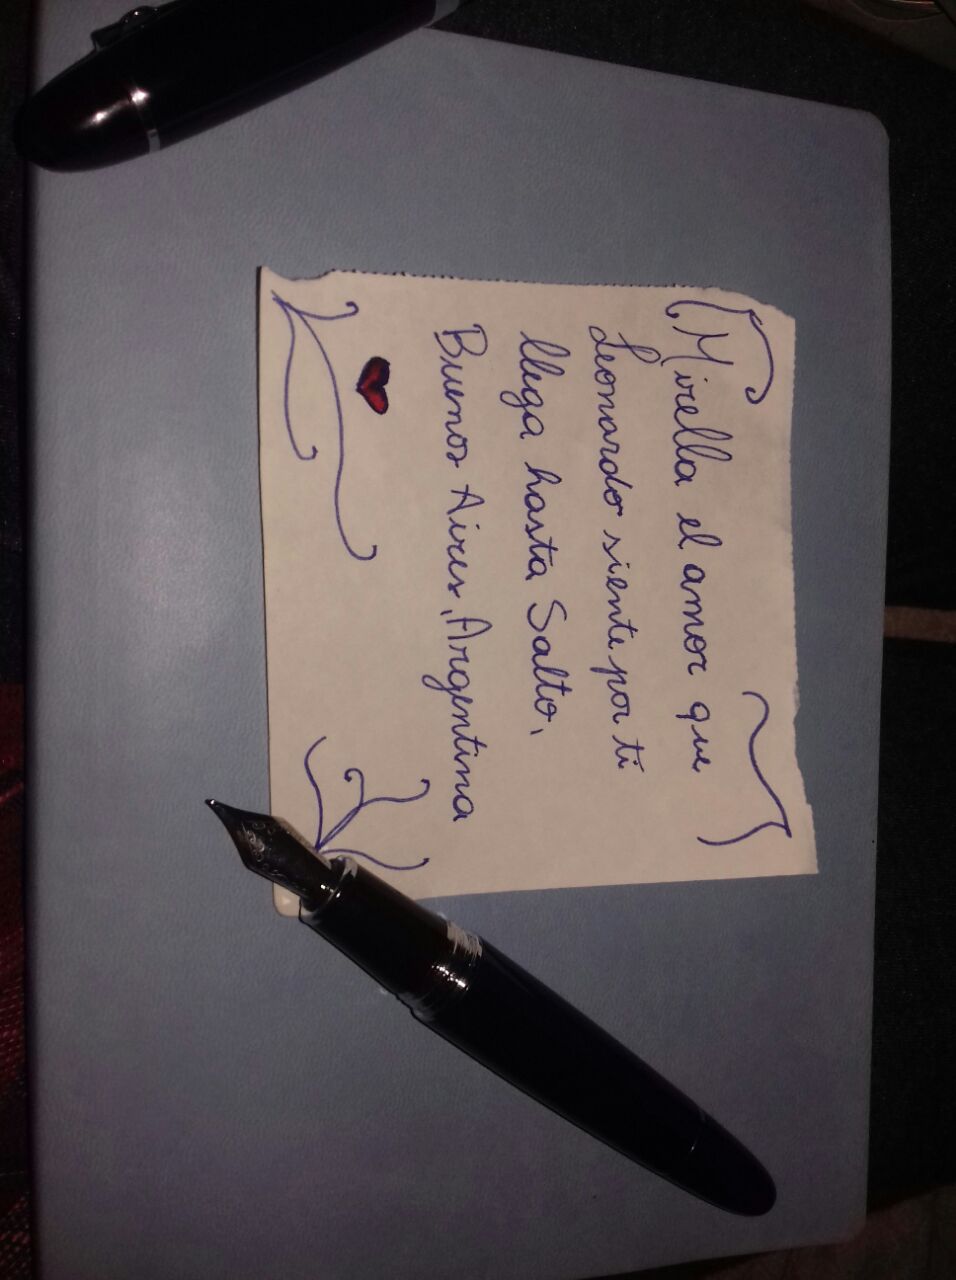 Mirella el amor que
Leonardo siente por ti
llega hasta Salto,
Buenos Aires, Argentina